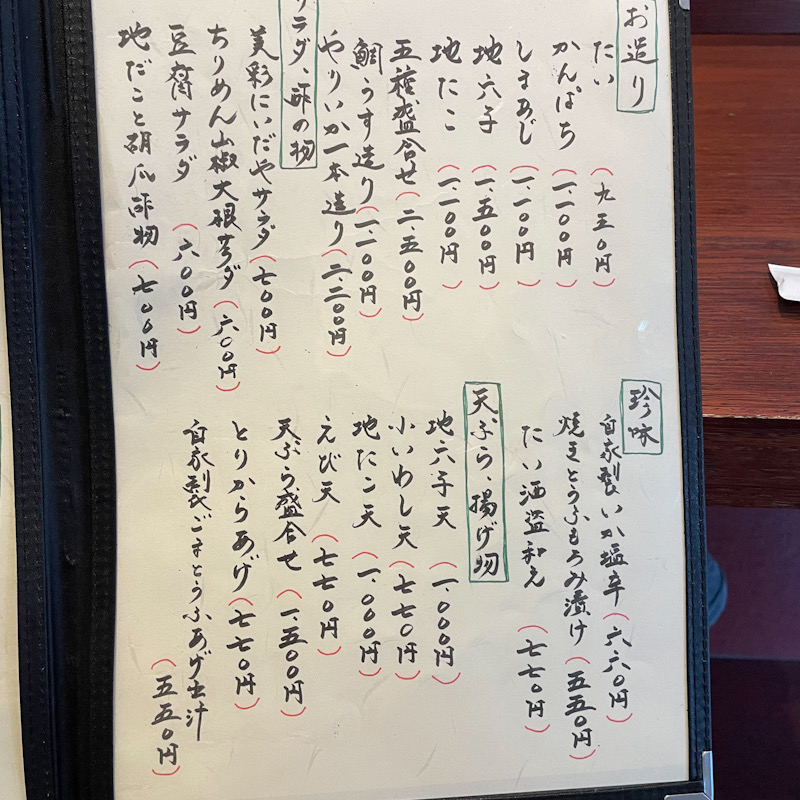 お造り
たい (九五〇円)
かんぱち (一、一〇〇円)
しまあじ (一、一〇〇円)
地穴子 (一、五〇〇円)
地たこ (一、一〇〇円)
五種盛合せ (二、五〇〇円)
鯛うす造り (一、一〇〇円)
やりいか一本造り (二、二〇〇円)
サラダ、酢の物
美彩にいだやサラダ (七〇〇円)
ちりめん山椒大根サラダ (六〇〇円)
豆腐サラダ (六〇〇円)
地だこと胡瓜酢物 (七〇〇円)
珍味
自家製いか塩辛 (六六〇円)
焼きとうふもろみ漬け (五五〇円)
たい酒盗和え (七七〇円)
天ぷら、揚げ物
地穴子天 (一、〇〇〇円)
小いわし天 (七七〇円)
地たこ天 (一、〇〇〇円)
えび天 (七七〇円)
天ぷら盛合せ (一、五〇〇円)
とりからあげ (七七〇円)
自家製ごまとうふあげ出汁 (五五〇円)